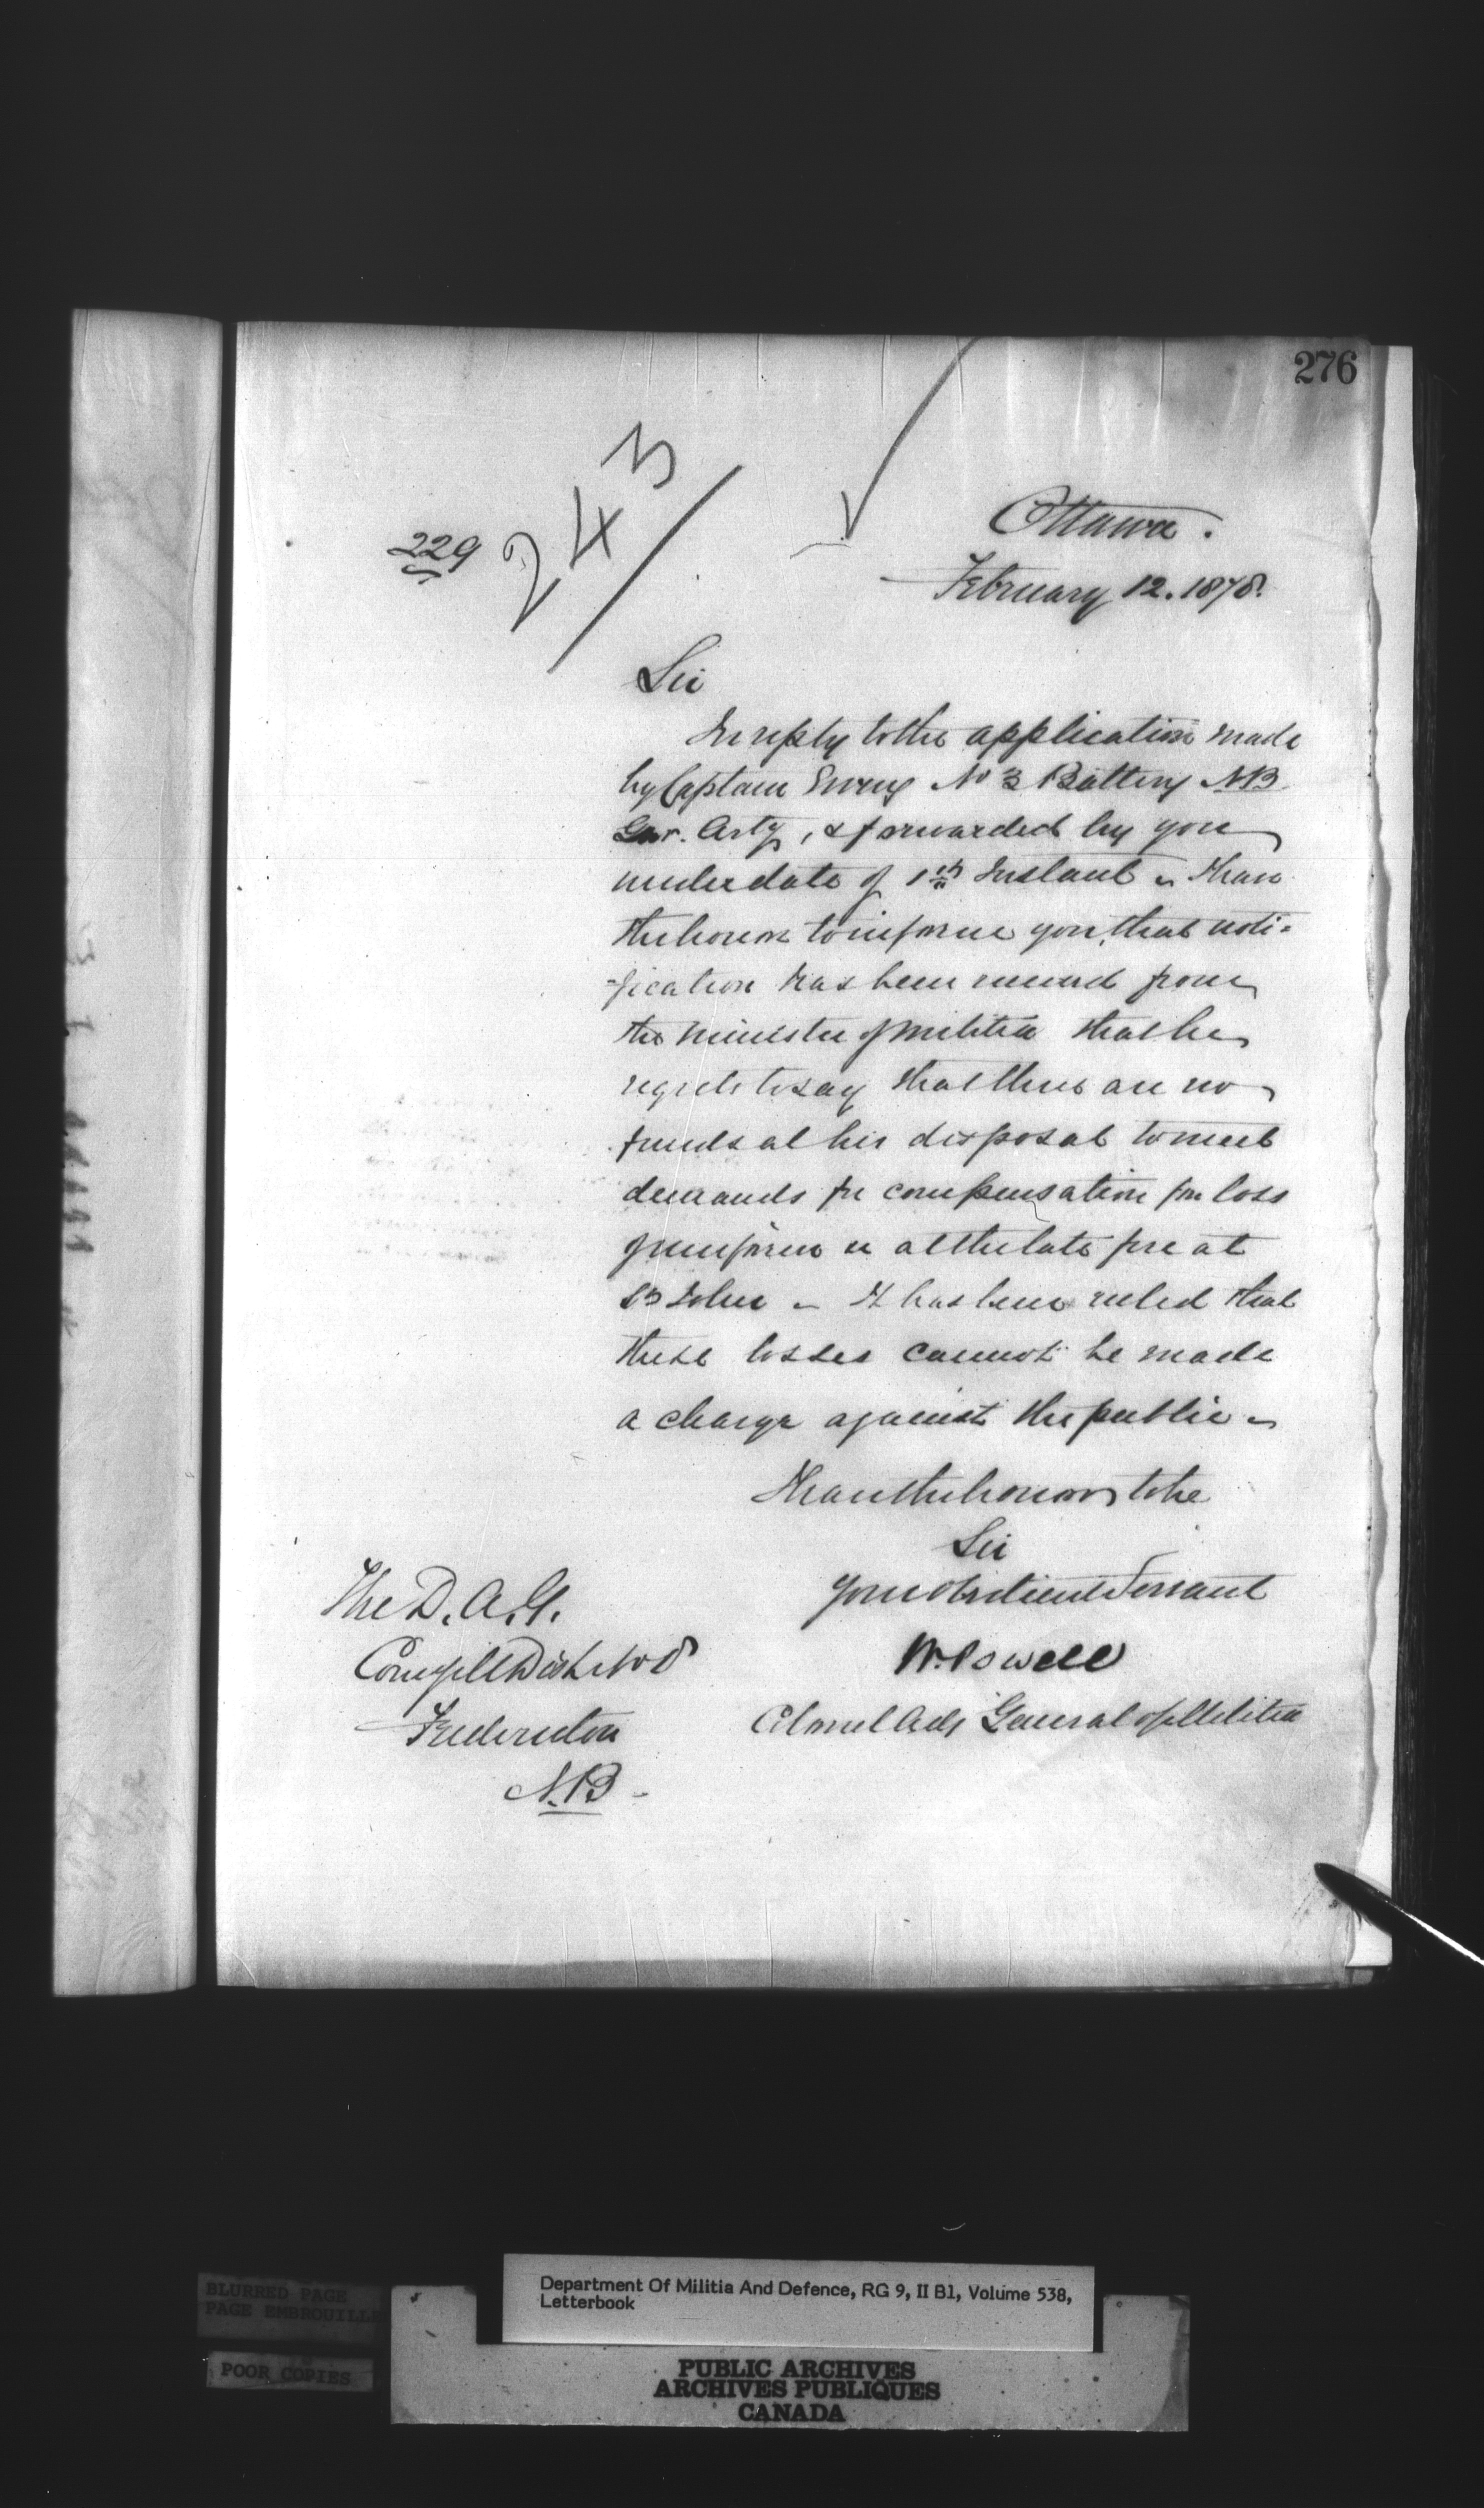 276
243
229
Ottawa.
February 12. 1878.
Sir
In reply to the application made
by Captain Ewing No 3 Battery N.B.
Gar. Arty, & forwarded by you
under date of 1st Instant – I have
the honor to inform you, that noti-
-fication has been received from
the Minister of Militia that he
regrets to say that there are no
funds at his disposal to meet
demands for compensation for loss
of uniform at the late fire at
St John – It has been ruled that
these losses cannot be made
a charge against the public –
I have the honor to be
Sir
Your Obedient Servant
W. Powell
Colonel Adjt General of Militia
The D.A.G.
Comg Mil Dist No 8
Fredericton
N.B –
Department Of Militia And Defence, RG 9, II B1, Volume 538,
Letterbook
BLURRED PAGE
PAGE EMBROUILLE
POOR COPIES
PUBLIC ARCHIVES
ARCHIVES PUBLIQUES
CANADA